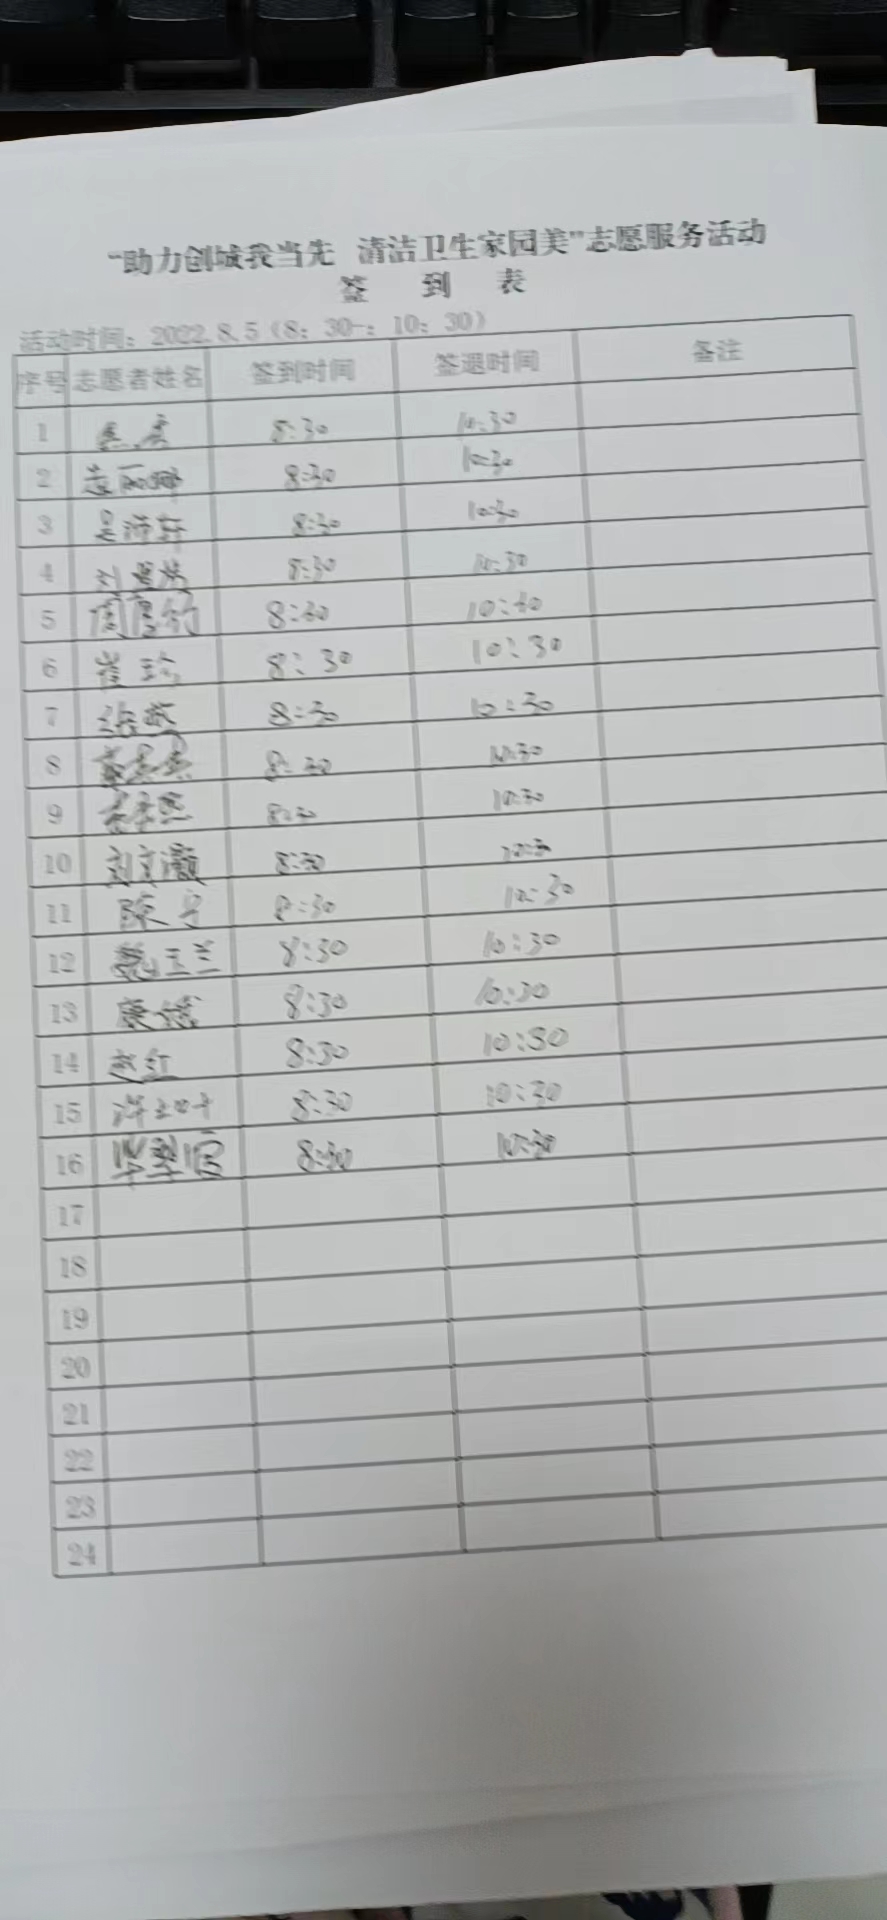 “助力创城我当先 清洁卫生家园美”志愿服务活动
签 到 表
活动时间：2022.8.5（8：30-：10：30）
序号 志愿者姓名 签到时间 签退时间 备注
1 8:30 10:30
2 8:30 10:30
3 8:30 10:30
4 8:30 10:30
5 8:30 10:30
6 崔珍 8:30 10:30
7 8:30 10:30
8 8:30 10:30
9 8:30 10:30
10 刘文灏 8:30 10:30
11 陈 8:30 10:30
12 魏玉兰 8:30 10:30
13 康 8:30 10:30
14 赵红 8:30 10:30
15 8:30 10:30
16 8:30 10:30
17
18
19
20
21
22
23
24